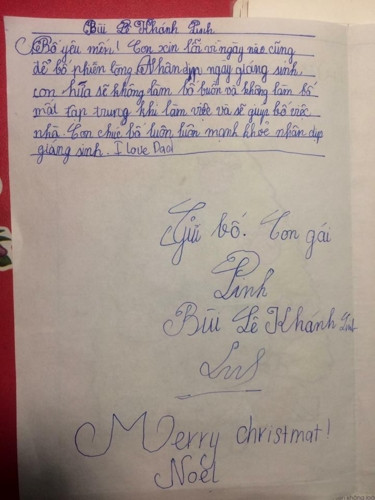 Bùi Lê Khánh Linh
Bố yêu mến! Con xin lỗi vì ngày nào cũng
để bố phiền lòng. Nhân dịp ngày giáng sinh,
con hứa sẽ không làm bố buồn và không làm bố
mất tập trung khi làm việc và sẽ giúp bố việc
nhà. Con chúc bố luôn luôn mạnh khoẻ nhân dịp
giáng sinh. I love Dad
Gửi bố. Con gái
Linh
Bùi Lê Khánh Linh
Merry christmat!
Noel